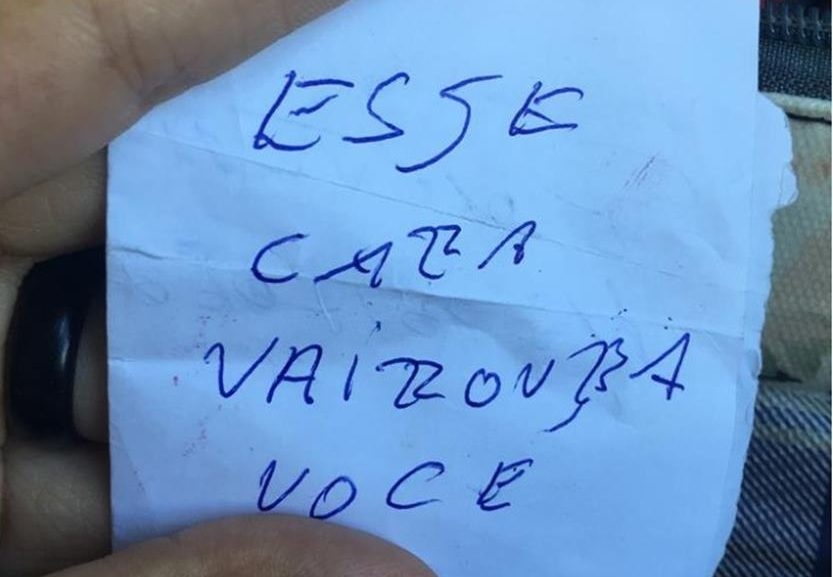 ESSE
CARA
VAIROUBA
VOCE